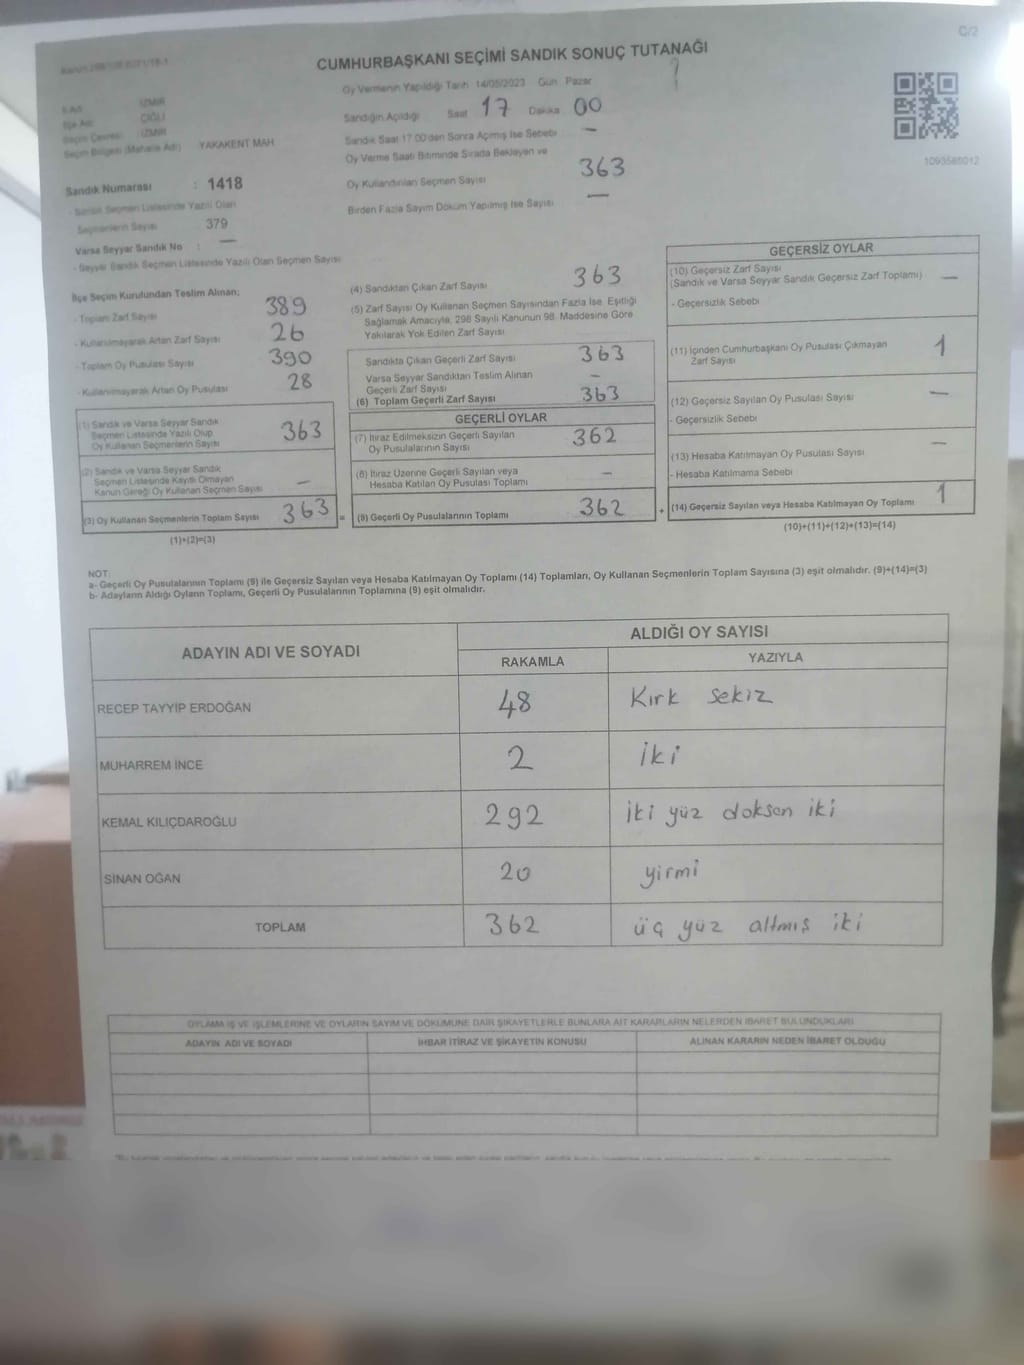 C/2
CUMHURBAŞKANI SEÇİMİ SANDIK SONUÇ TUTANAĞI
Oy Vermenin Yapıldığı Tarih 14/05/2023 Gün Pazar
İl Adı İZMİR
İlçe Adı ÇİĞLİ
Seçim Çevresi İZMİR
Seçim Bölgesi (Mahalle Adı) YAKAKENT MAH.
Sandığın Açıldığı Saat 17 Dakika 00
Sandık Saat 17:00'den Sonra Açılmış İse Sebebi —
Oy Verme Saati Bitiminde Sırada Bekleyen ve
Oy Kullandırılan Seçmen Sayısı 363
Birden Fazla Sayım Döküm Yapılmış İse Sayısı —
1093580012
Sandık Numarası : 1418
- Sandık Seçmen Listesinde Yazılı Olan
Seçmenlerin Sayısı 379
Varsa Seyyar Sandık No : —
- Seyyar Sandık Seçmen Listesinde Yazılı Olan Seçmen Sayısı
İlçe Seçim Kurulundan Teslim Alınan;
- Toplam Zarf Sayısı 389
- Kullanılmayarak Artan Zarf Sayısı 26
- Toplam Oy Pusulası Sayısı 390
- Kullanılmayarak Artan Oy Pusulası 28
(1) Sandık ve Varsa Seyyar Sandık
Seçmen Listesinde Yazılı Olup
Oy Kullanan Seçmenlerin Sayısı 363
(2) Sandık ve Varsa Seyyar Sandık
Seçmen Listesinde Kayıtlı Olmayan
Kanun Gereği Oy Kullanan Seçmen Sayısı —
(3) Oy Kullanan Seçmenlerin Toplam Sayısı 363 =
(1)+(2)=(3)
(4) Sandıktan Çıkan Zarf Sayısı 363
(5) Zarf Sayısı Oy Kullanan Seçmen Sayısından Fazla İse, Eşitliği
Sağlamak Amacıyla, 298 Sayılı Kanunun 98. Maddesine Göre
Yakılarak Yok Edilen Zarf Sayısı
Sandıkta Çıkan Geçerli Zarf Sayısı 363
Varsa Seyyar Sandıktan Teslim Alınan
Geçerli Zarf Sayısı —
(6) Toplam Geçerli Zarf Sayısı 363
GEÇERLİ OYLAR
(7) İtiraz Edilmeksizin Geçerli Sayılan
Oy Pusulalarının Sayısı 362
(8) İtiraz Üzerine Geçerli Sayılan veya
Hesaba Katılan Oy Pusulası Toplamı —
(9) Geçerli Oy Pusulalarının Toplamı 362 +
GEÇERSİZ OYLAR
(10) Geçersiz Zarf Sayısı
(Sandık ve Varsa Seyyar Sandık Geçersiz Zarf Toplamı) —
- Geçersizlik Sebebi
(11) İçinden Cumhurbaşkanı Oy Pusulası Çıkmayan
Zarf Sayısı 1
(12) Geçersiz Sayılan Oy Pusulası Sayısı —
- Geçersizlik Sebebi
(13) Hesaba Katılmayan Oy Pusulası Sayısı —
- Hesaba Katılmama Sebebi
(14) Geçersiz Sayılan veya Hesaba Katılmayan Oy Toplamı 1
(10)+(11)+(12)+(13)=(14)
NOT:
a- Geçerli Oy Pusulalarının Toplamı (9) ile Geçersiz Sayılan veya Hesaba Katılmayan Oy Toplamı (14) Toplamları, Oy Kullanan Seçmenlerin Toplam Sayısına (3) eşit olmalıdır. (9)+(14)=(3)
b- Adayların Aldığı Oyların Toplamı, Geçerli Oy Pusulalarının Toplamına (9) eşit olmalıdır.
ADAYIN ADI VE SOYADI ALDIĞI OY SAYISI
RAKAMLA YAZIYLA
RECEP TAYYİP ERDOĞAN 48 Kırk sekiz
MUHARREM İNCE 2 İki
KEMAL KILIÇDAROĞLU 292 iki yüz doksan iki
SİNAN OĞAN 20 yirmi
TOPLAM 362 üç yüz altmış iki
OYLAMA İŞ VE İŞLEMLERİNE VE OYLARIN SAYIM VE DÖKÜMÜNE DAİR ŞİKAYETLERLE BUNLARA AİT KARARLARIN NELERDEN İBARET BULUNDUKLARI
ADAYIN ADI VE SOYADI İHBAR İTİRAZ VE ŞİKAYETİN KONUSU ALINAN KARARIN NEDEN İBARET OLDUĞU